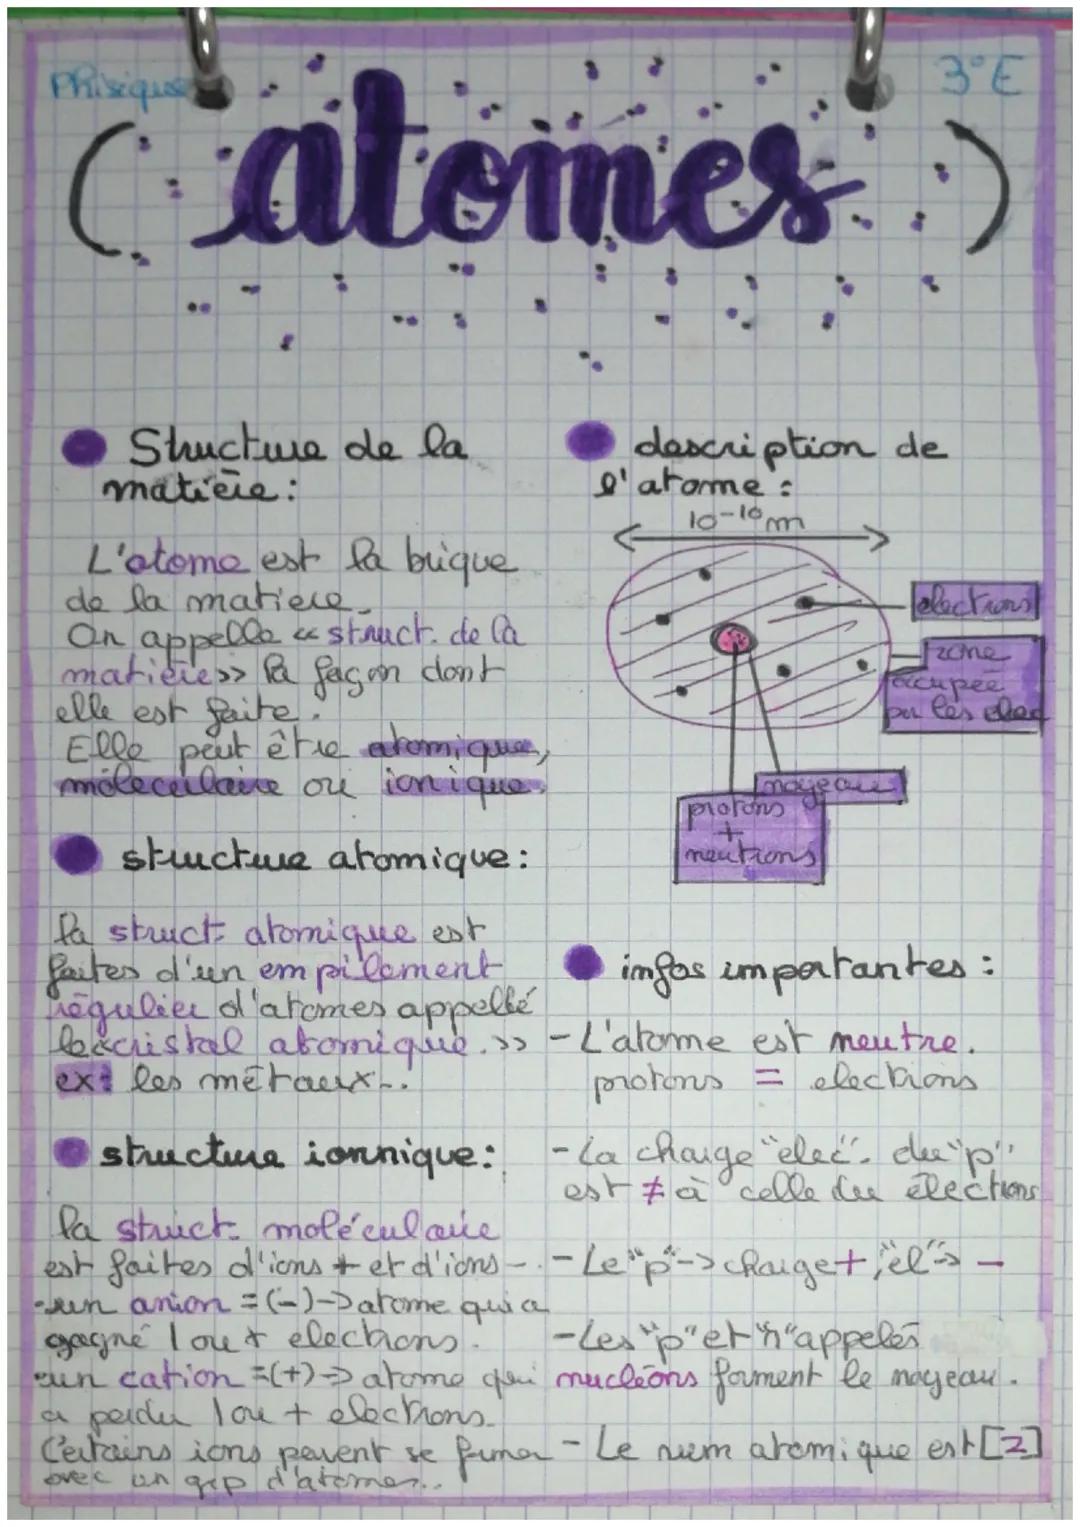 Phisique
3°E
(atomes)
Structure de la
matière :
L'atome est la brique
de la matiere.
On appelle « struct. de la
matière» la façon dont
elle est faite.
Elle peut être atomique,
moleculaire ou ionique.
structure atomique :
la struct. atomique est
faites d'un empilement
régulier d'atomes appellé
le«cristal atomique.»
ex: les métaux...
structure ionnique :
la struct. moléculaire
est faites d'ions + et d'ions -.
-un anion =(-)->atome qui a
gagné 1 ou + electrons.
-un cation =(+)-> atome qui
a perdu 1 ou + electrons.
Certains ions peuvent se former
avec un grp d'atomes..
description de
l'atome :
10-10 m
electrons
zone
occupée
par les elec
noyeau
protons
+
neutrons
infos importantes :
- L'atome est neutre.
protons = electrons
- La charge "élec". du "p"
est ≠ à celle du électrons
- Le "p"-> charge + ; "él"-> -
- Les "p" et "n" appelés
nucléons forment le noyeau.
- Le num atomique est [Z]